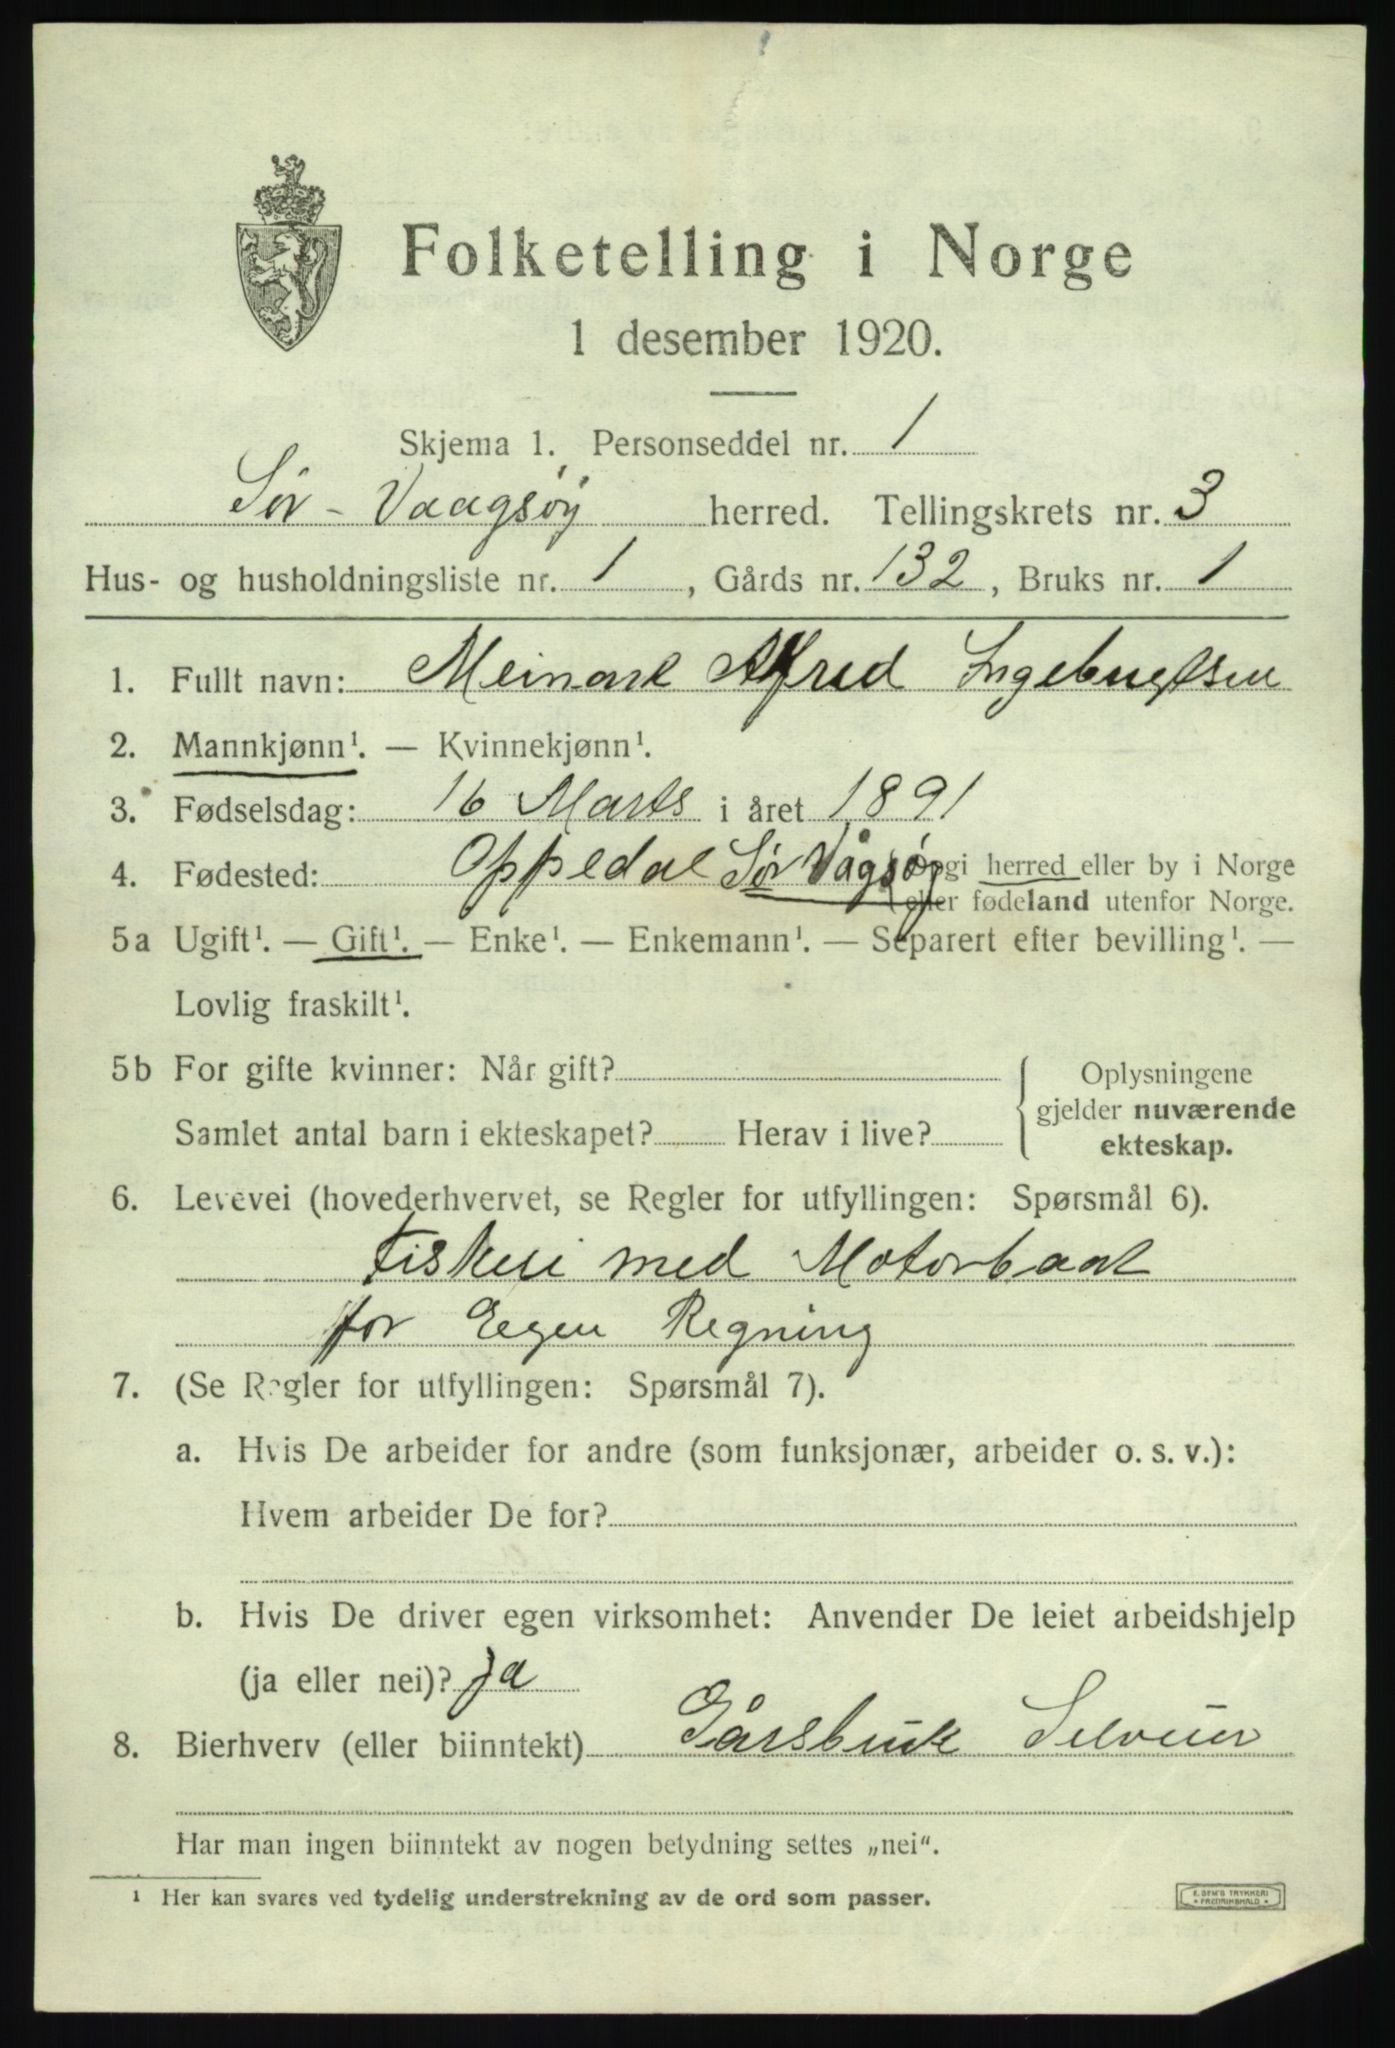 Folketelling i Norge
1 desember 1920.
Skjema 1. Personseddel nr. 1
Sör-Vaagsöy herred. Tellingskrets nr. 3
Hus- og husholdningsliste nr. 1, Gårds nr. 132, Bruks nr. 1
1. Fullt navn: Meinart Alfred Ingebrigtsen
2. Mannkjønn¹. — Kvinnekjønn¹.
3. Fødselsdag: 16 Marts i året 1891
4. Fødested: Oppedal Sör Vågsöy (Opgi herred eller by i Norge
eller fødeland utenfor Norge.
5a Ugift¹. — Gift¹. — Enke¹. — Enkemann¹. — Separert efter bevilling¹. —
Lovlig fraskilt¹.
5b For gifte kvinner: Når gift?
Samlet antal barn i ekteskapet? Herav i live?
Oplysningene
gjelder nuværende
ekteskap.
6. Levevei (hovederhvervet, se Regler for utfyllingen: Spørsmål 6).
Fiskeri med Motorbaat
for Eegen Regning
7. (Se Regler for utfyllingen: Spørsmål 7).
a. Hvis De arbeider for andre (som funksjonær, arbeider o. s. v.):
Hvem arbeider De for?
b. Hvis De driver egen virksomhet: Anvender De leiet arbeidshjelp
(ja eller nei)? Ja
8. Bierhverv (eller biinntekt) Gårsbruk Selveier
Har man ingen biinntekt av nogen betydning settes „nei“.
¹ Her kan svares ved tydelig understrekning av de ord som passer.
E. SEM'S TRYKKERI
FREDRIKSHALD